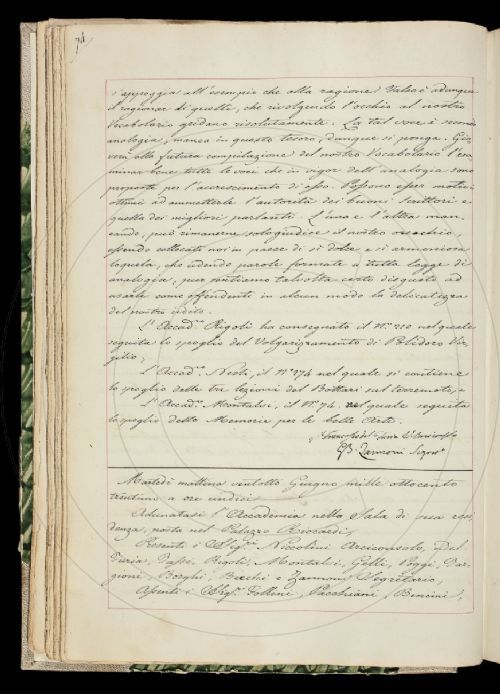 74
s'appoggia all'esempio che alla ragione. Tale è adunque
il ragionar di quelli, che rivolgendo l'occhio al nostro
Vocabolario gridano risolutamente. La tal voce è secondo
analogia, manca in questo tesoro, dunque si ponga. Gio
verà alla futura compilazione del nostro Vocabolario l'esa
minar bene tutte le voci che in vigor dell'analogia sono
proposte per l'accrescimento di esso. Possono esser motivi
ottimi ad ammetterle l'autorità dei buoni Scrittori e
quella dei migliori parlanti. L'una e l'altra man
cando, può rimanerne solo giudice il nostro orecchio,
essendo collocati noi in paese di sì dolce e sì armoniosa
loquela, che udendo parole formate a tutta legge di
analogia, pur sentiamo talvolta certo disgusto ad
usarle come offendenti in alcun modo la delicatezza
del nostro udito.
L'Accad. Rigoli ha consegnato il N.º 210 nel quale
seguita lo spoglio del Volgarizzamento di Polidoro Vir
gilio;
L'Accad. Nesti, il N.º 374 nel quale si contiene
lo spoglio delle tre lezioni del Bottari sul terremoto, e
L'Accad. Montalvi, il N.º 74. nel quale seguita
lo spoglio delle Memorie per le belle Arti.
GB. Zannoni Segret.
Martedì mattina ventotto Giugno mille ottocento
trentuno a ore undici.
Adunatasi l'Accademia nella Sala di sua resi
denza, posta nel Palazzo Riccardi,
Presenti i Sigg.ri Niccolini Arciconsolo, Del
Furia, Tassi, Rigoli, Montalvi, Gelli, Poggi, Tar
gioni, Borghi, Becchi e Zannoni Segretario,
Assenti i Sigg. Follini, Pacchiani, Bencini,